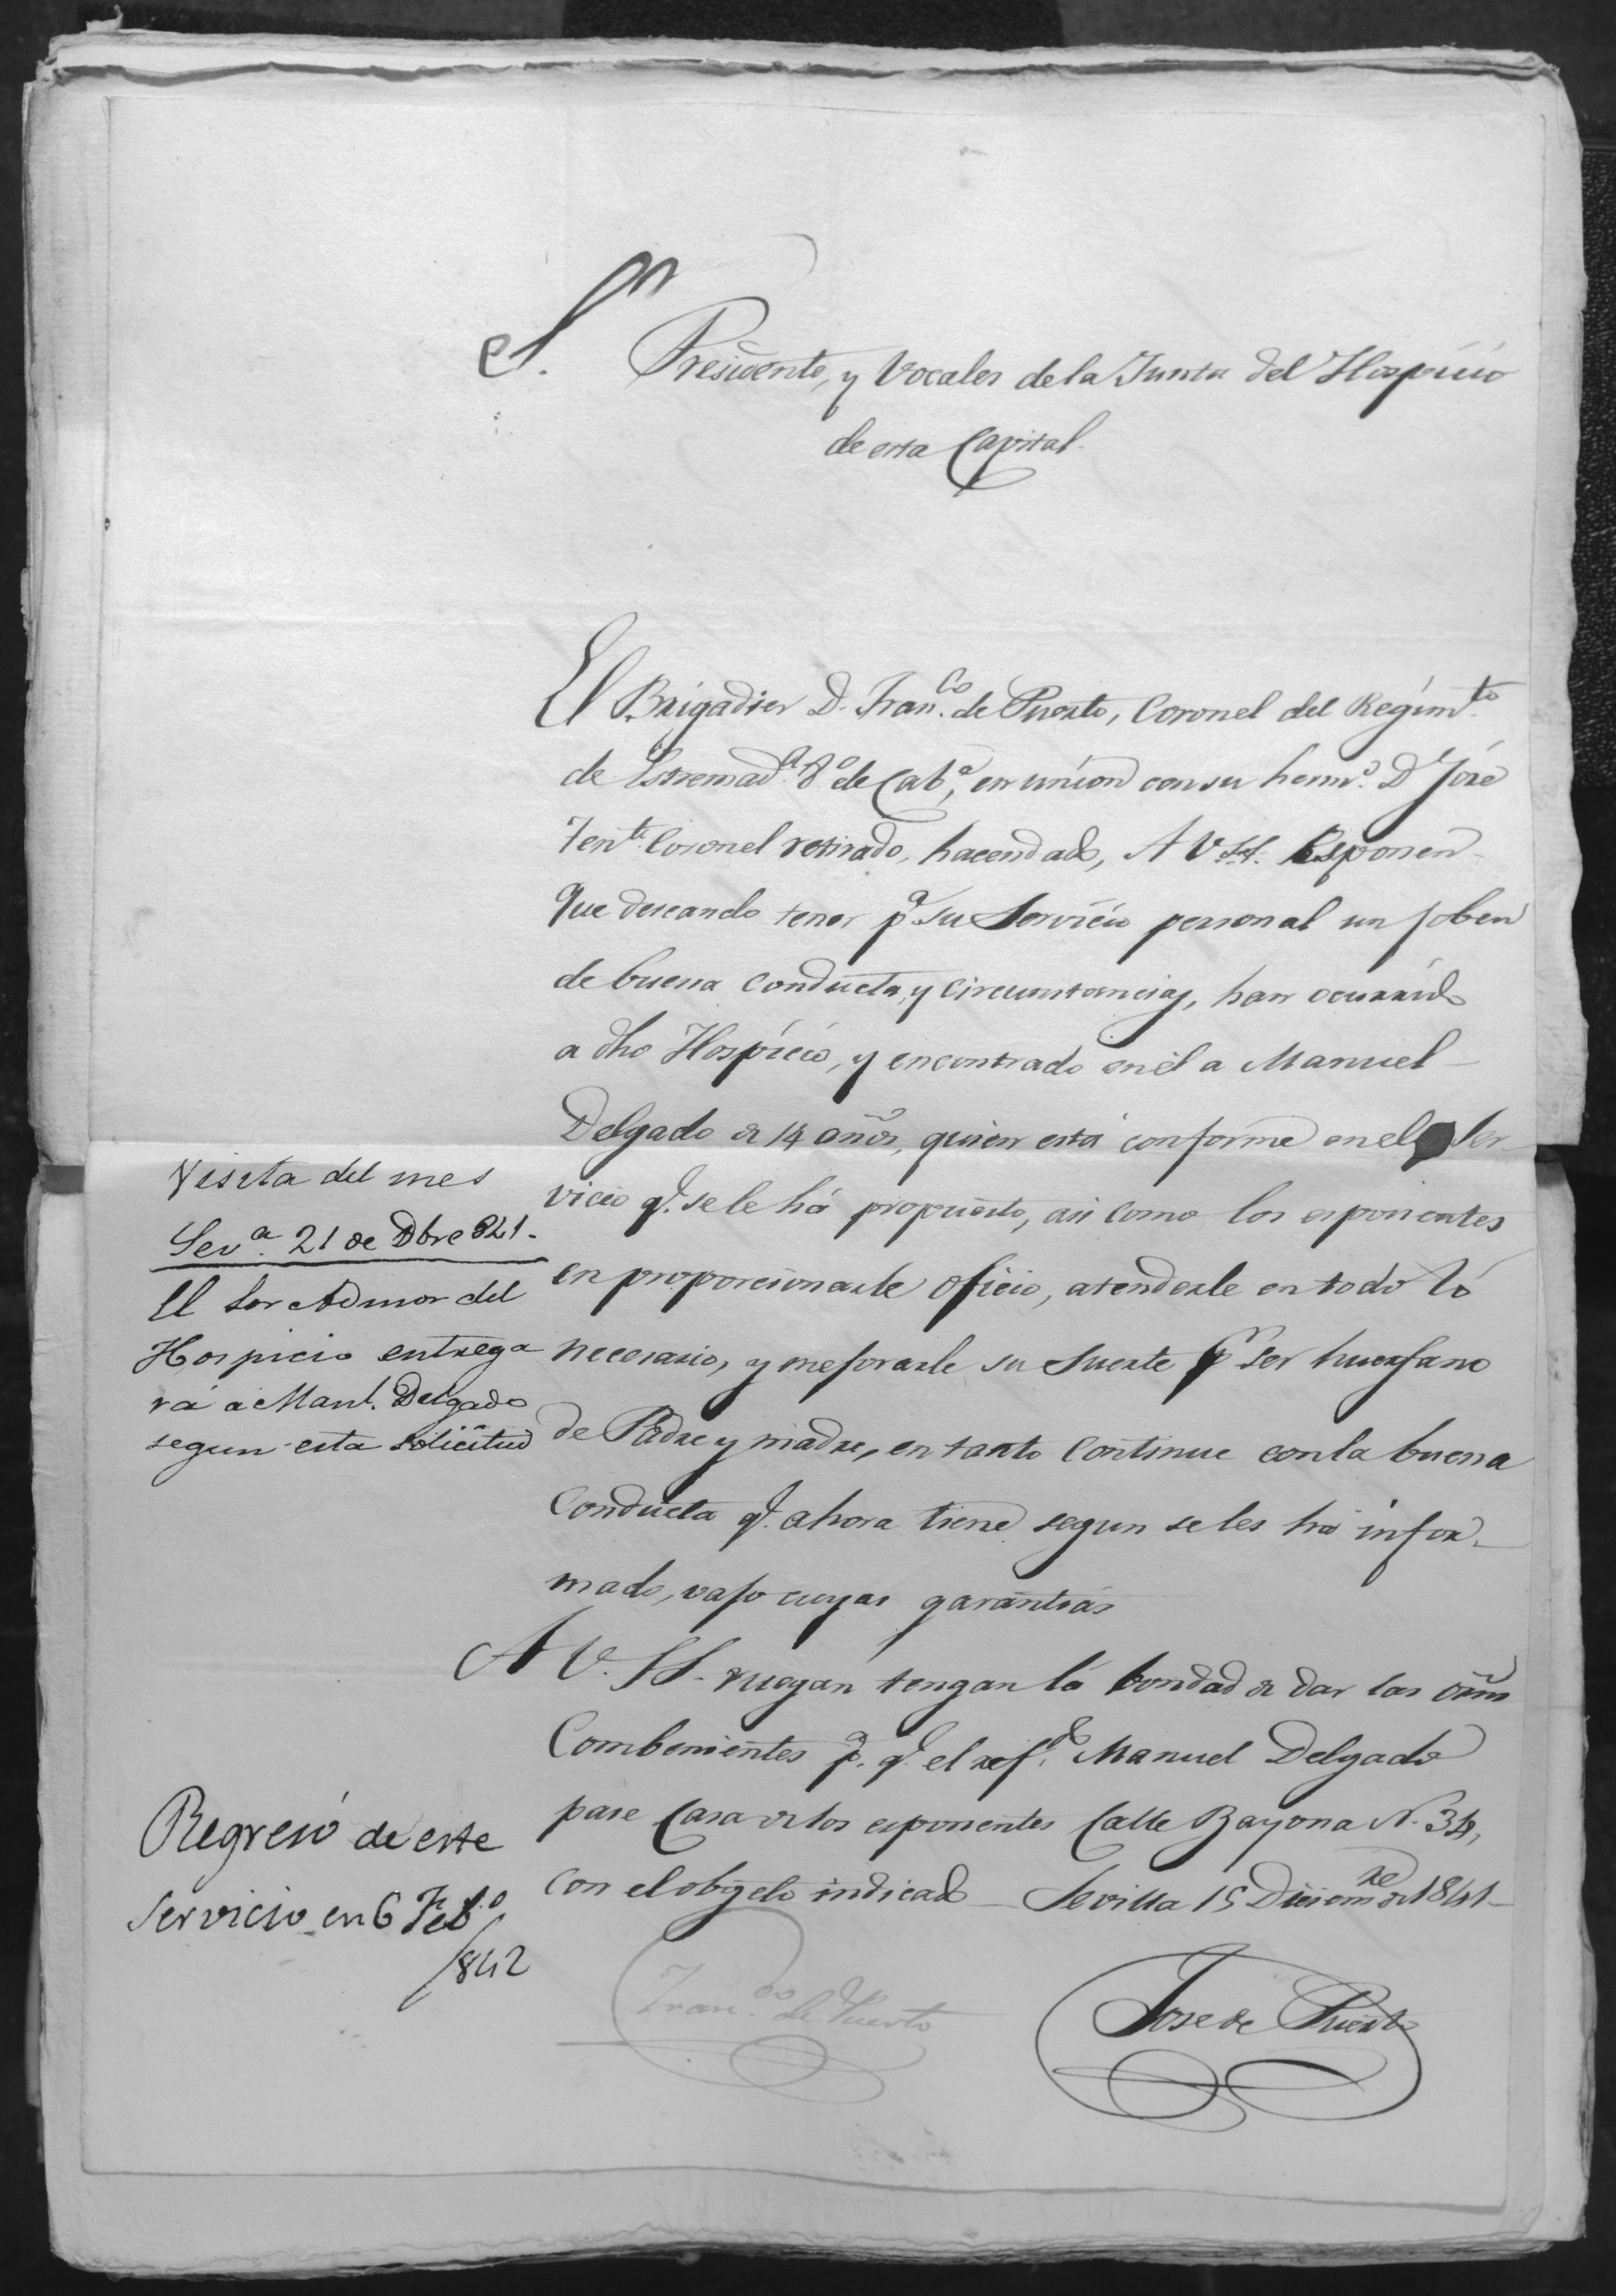 Sr. Presidente, y Vocales de la Junta del Hospicio
de esta Capital.
El Brigadier D. Franco. de Puerto, Coronel del Regimto.
de Estremada. 8o. de Caba, en union con su hermo. Dn José
Tente. Coronel retirado, hacendado, A V.SS. Esponen
Que deseando tener pa. su Servicio personal un joben
de buena conducta, y circunstancias, han ocurrido
a dho Hospicio, y encontrado en él a Manuel
Delgado de 14 años, quien está conforme en el Ser-
vicio q. se le há propuesto, asi como los esponentes
en proporcionarle oficio, atenderle en todo ló
necesario, y mejorarle su suerte pr. ser huerfano
de Padre y madre, en tanto continue con la buena
Conducta q. ahora tiene segun se les há infor-
mado, vajo cuyas garantias
A V. SS. ruegan tengan lá bondad de dar las orns
Combenientes pa. q. el refdo. Manuel Delgado
pase Casa de los esponentes Calle Bayona N. 34,
con el obgeto indicado — Sevilla 15 Diciembre de 1841—
Franco. de Puerto
Jose de Puerto
Visita del mes
Seva. 21 de Dbre 841.
El Sor Admor del
Hospicio entrega
rá a Manl. Delgado
segun esta solicitud
Regresó de este
servicio en 6 Febo.
/842